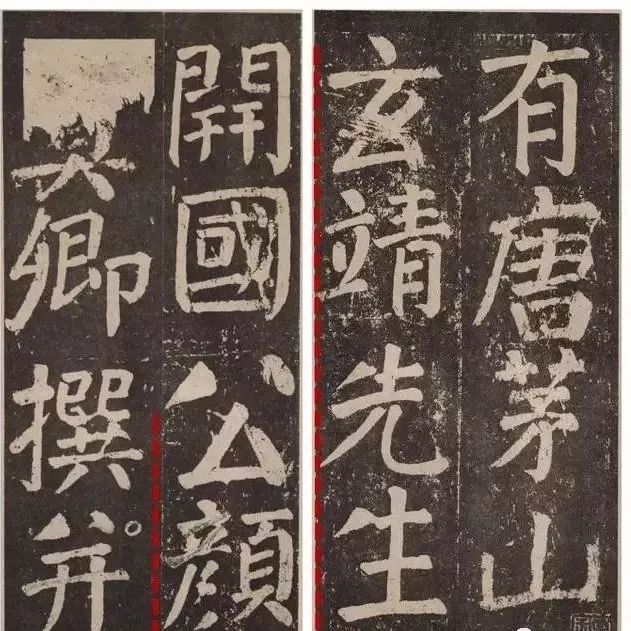 有唐茅山
玄靖先生
開國公顏
卿撰并